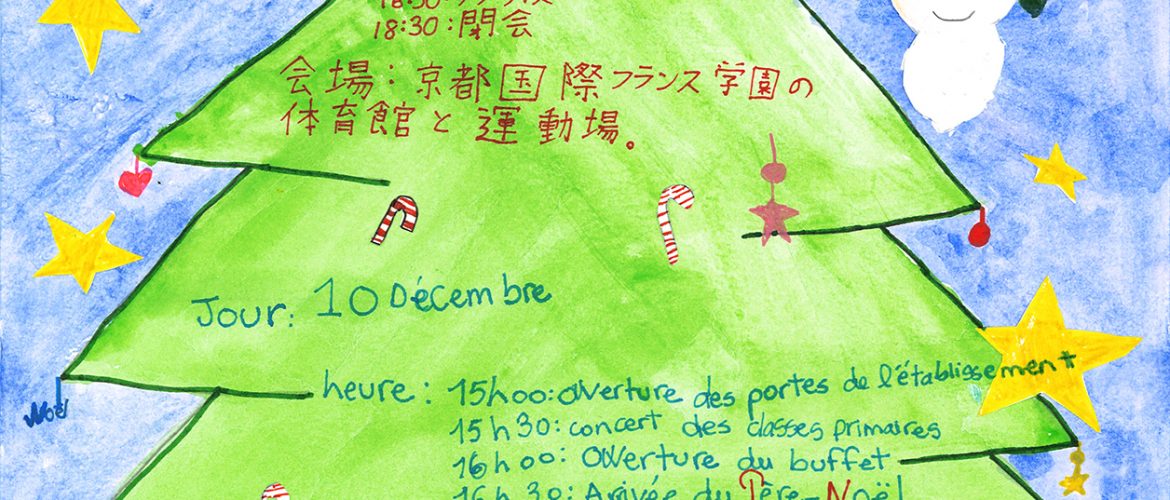 18:30:閉会
会場:京都国際フランス学園の
体育館と運動場。
Jour: 10 Décembre
heure: 15h00: ouverture des portes de l'établissement
Noël
15h30: concert des classes primaires
16h00: Ouverture du buffet
16h30: Arivée du Père-Noël